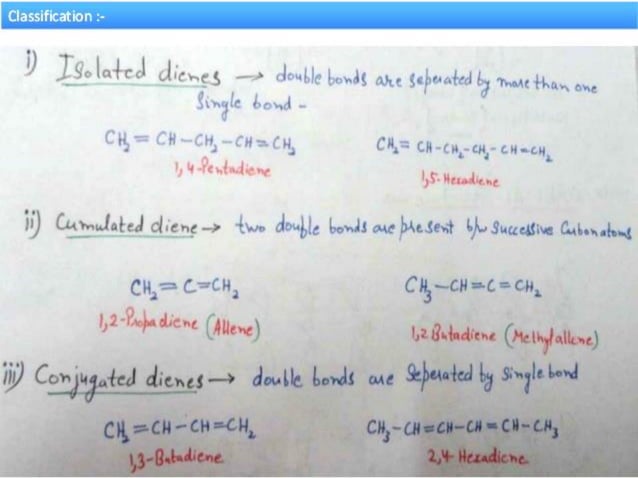 Classification :-
i) Isolated dienes → double bonds are seperated by more than one
Single bond -
CH₂ = CH – CH₂ – CH = CH₂
CH₂ = CH – CH₂ – CH₂ – CH = CH₂
1,4-Pentadiene
1,5-Hexadiene
ii) Cumulated diene → two double bonds are present b/w Successive Carbon atoms
CH₂ = C = CH₂
CH₃ – CH = C = CH₂
1,2-Propadiene (Allene)
1,2 Butadiene (Methylallene)
iii) Conjugated dienes → double bonds are Seperated by Single bond
CH₂ = CH – CH = CH₂
CH₃ – CH = CH – CH = CH – CH₃
1,3-Butadiene
2,4-Hexadiene